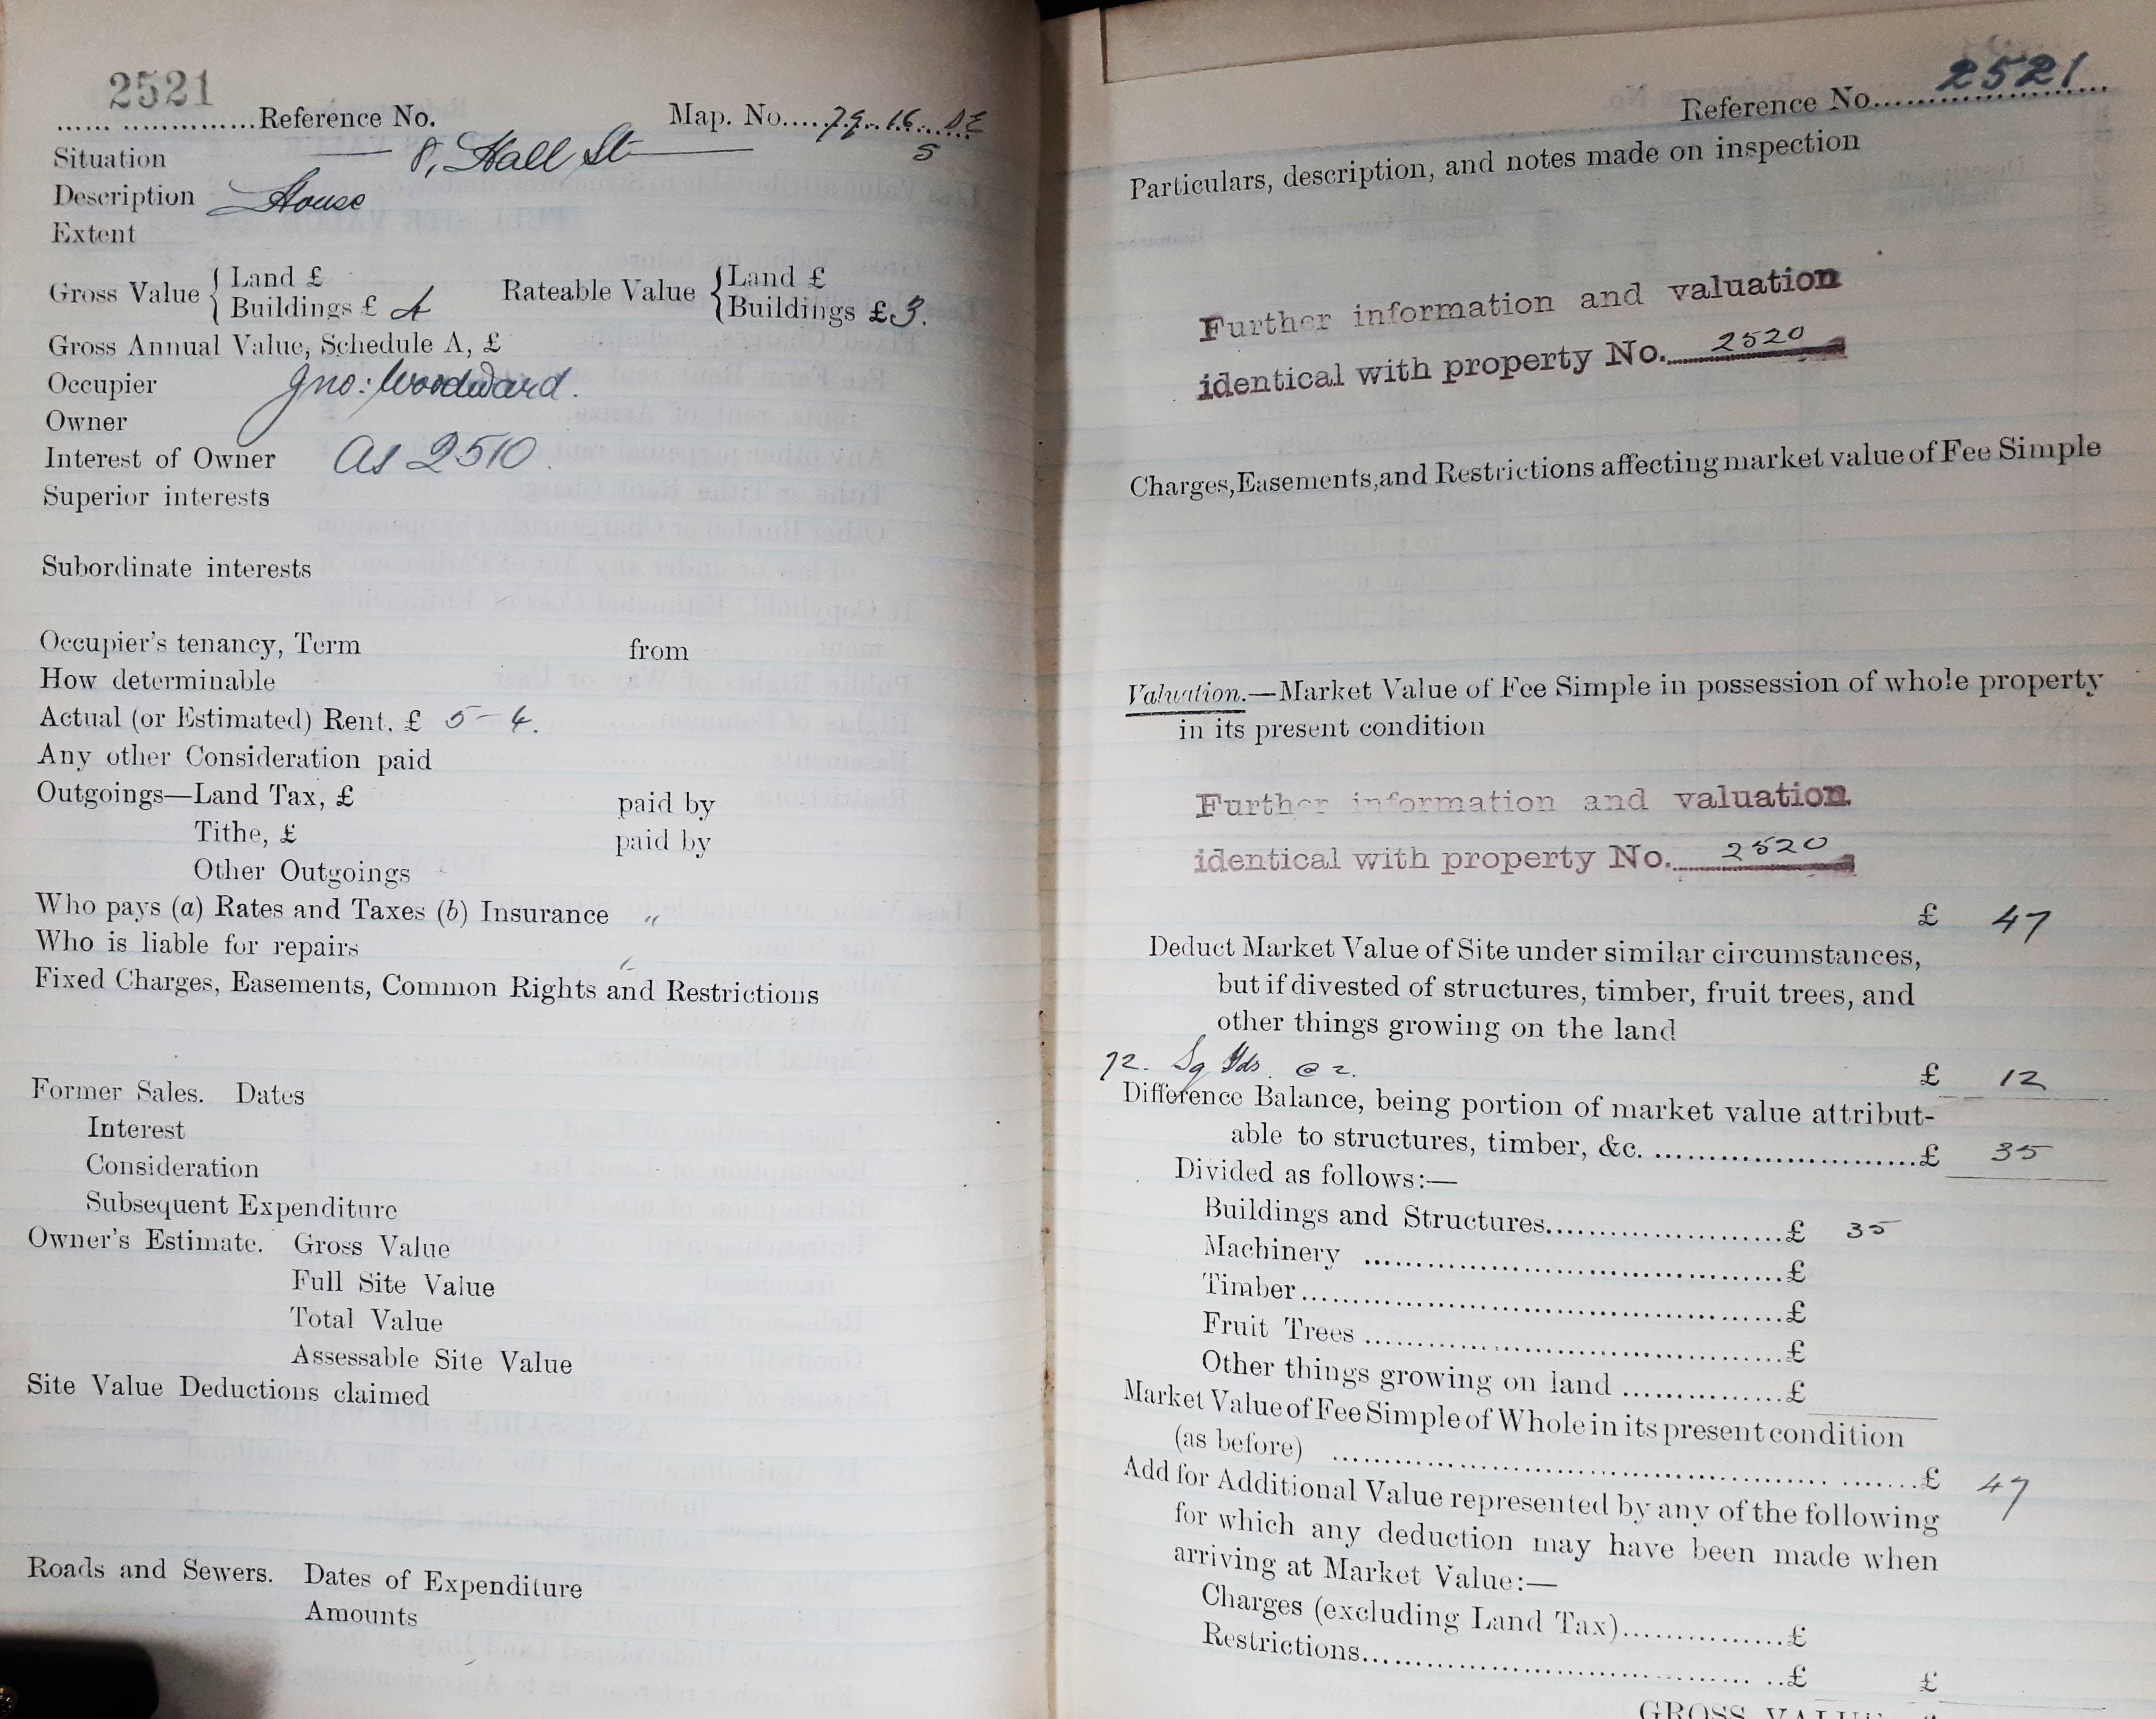 2521
...... ..............Reference No.    Map. No.....79.16. SE
5
Situation  8, Hall St
Description House
Extent
Gross Value { Land £    Rateable Value { Land £
Buildings £ 4    Buildings £ 3.
Gross Annual Value, Schedule A, £
Occupier  Jno: Woodward.
Owner
Interest of Owner  As 2510.
Superior interests
Subordinate interests
Occupier's tenancy, Term    from
How determinable
Actual (or Estimated) Rent, £ 5-4.
Any other Consideration paid
Outgoings—Land Tax, £    paid by
Tithe, £    paid by
Other Outgoings
Who pays (a) Rates and Taxes (b) Insurance  "
Who is liable for repairs
Fixed Charges, Easements, Common Rights and Restrictions
Former Sales.  Dates
Interest
Consideration
Subsequent Expenditure
Owner's Estimate.  Gross Value
Full Site Value
Total Value
Assessable Site Value
Site Value Deductions claimed
Roads and Sewers.  Dates of Expenditure
Amounts
Reference No. 2521
Particulars, description, and notes made on inspection
Further information and valuation
identical with property No. 2520
Charges, Easements, and Restrictions affecting market value of Fee Simple
Valuation.—Market Value of Fee Simple in possession of whole property
in its present condition
Further information and valuation
identical with property No. 2520
£ 47
Deduct Market Value of Site under similar circumstances,
but if divested of structures, timber, fruit trees, and
other things growing on the land
72. Sq Yds. @ 2.    £ 12
Difference Balance, being portion of market value attribut-
able to structures, timber, &c. ..........................£ 35
Divided as follows:—
Buildings and Structures......................£ 35
Machinery ......................................£
Timber...........................................£
Fruit Trees .....................................£
Other things growing on land ...............£
Market Value of Fee Simple of Whole in its present condition
(as before) ..................................................£ 47
Add for Additional Value represented by any of the following
for which any deduction may have been made when
arriving at Market Value:—
Charges (excluding Land Tax)...............£
Restrictions.....................................£    £
GROSS VALUE £